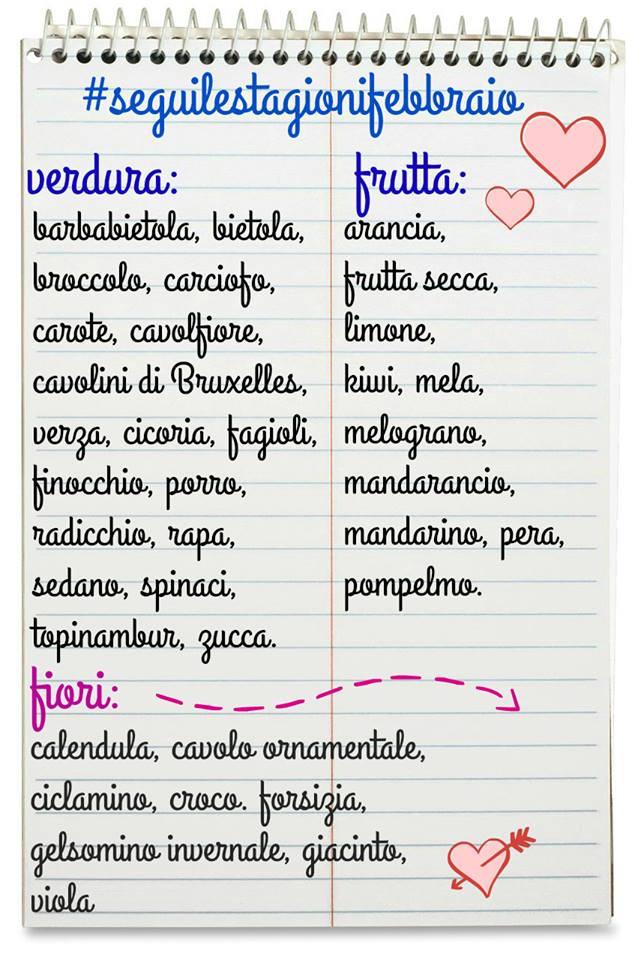 #seguilestagionifebbraio
verdura:
barbabietola, bietola,
broccolo, carciofo,
carote, cavolfiore,
cavolini di Bruxelles,
verza, cicoria, fagioli,
finocchio, porro,
radicchio, rapa,
sedano, spinaci,
topinambur, zucca.
frutta:
arancia,
frutta secca,
limone,
kiwi, mela,
melograno,
mandarancio,
mandarino, pera,
pompelmo.
fiori:
calendula, cavolo ornamentale,
ciclamino, croco. forsizia,
gelsomino invernale, giacinto,
viola